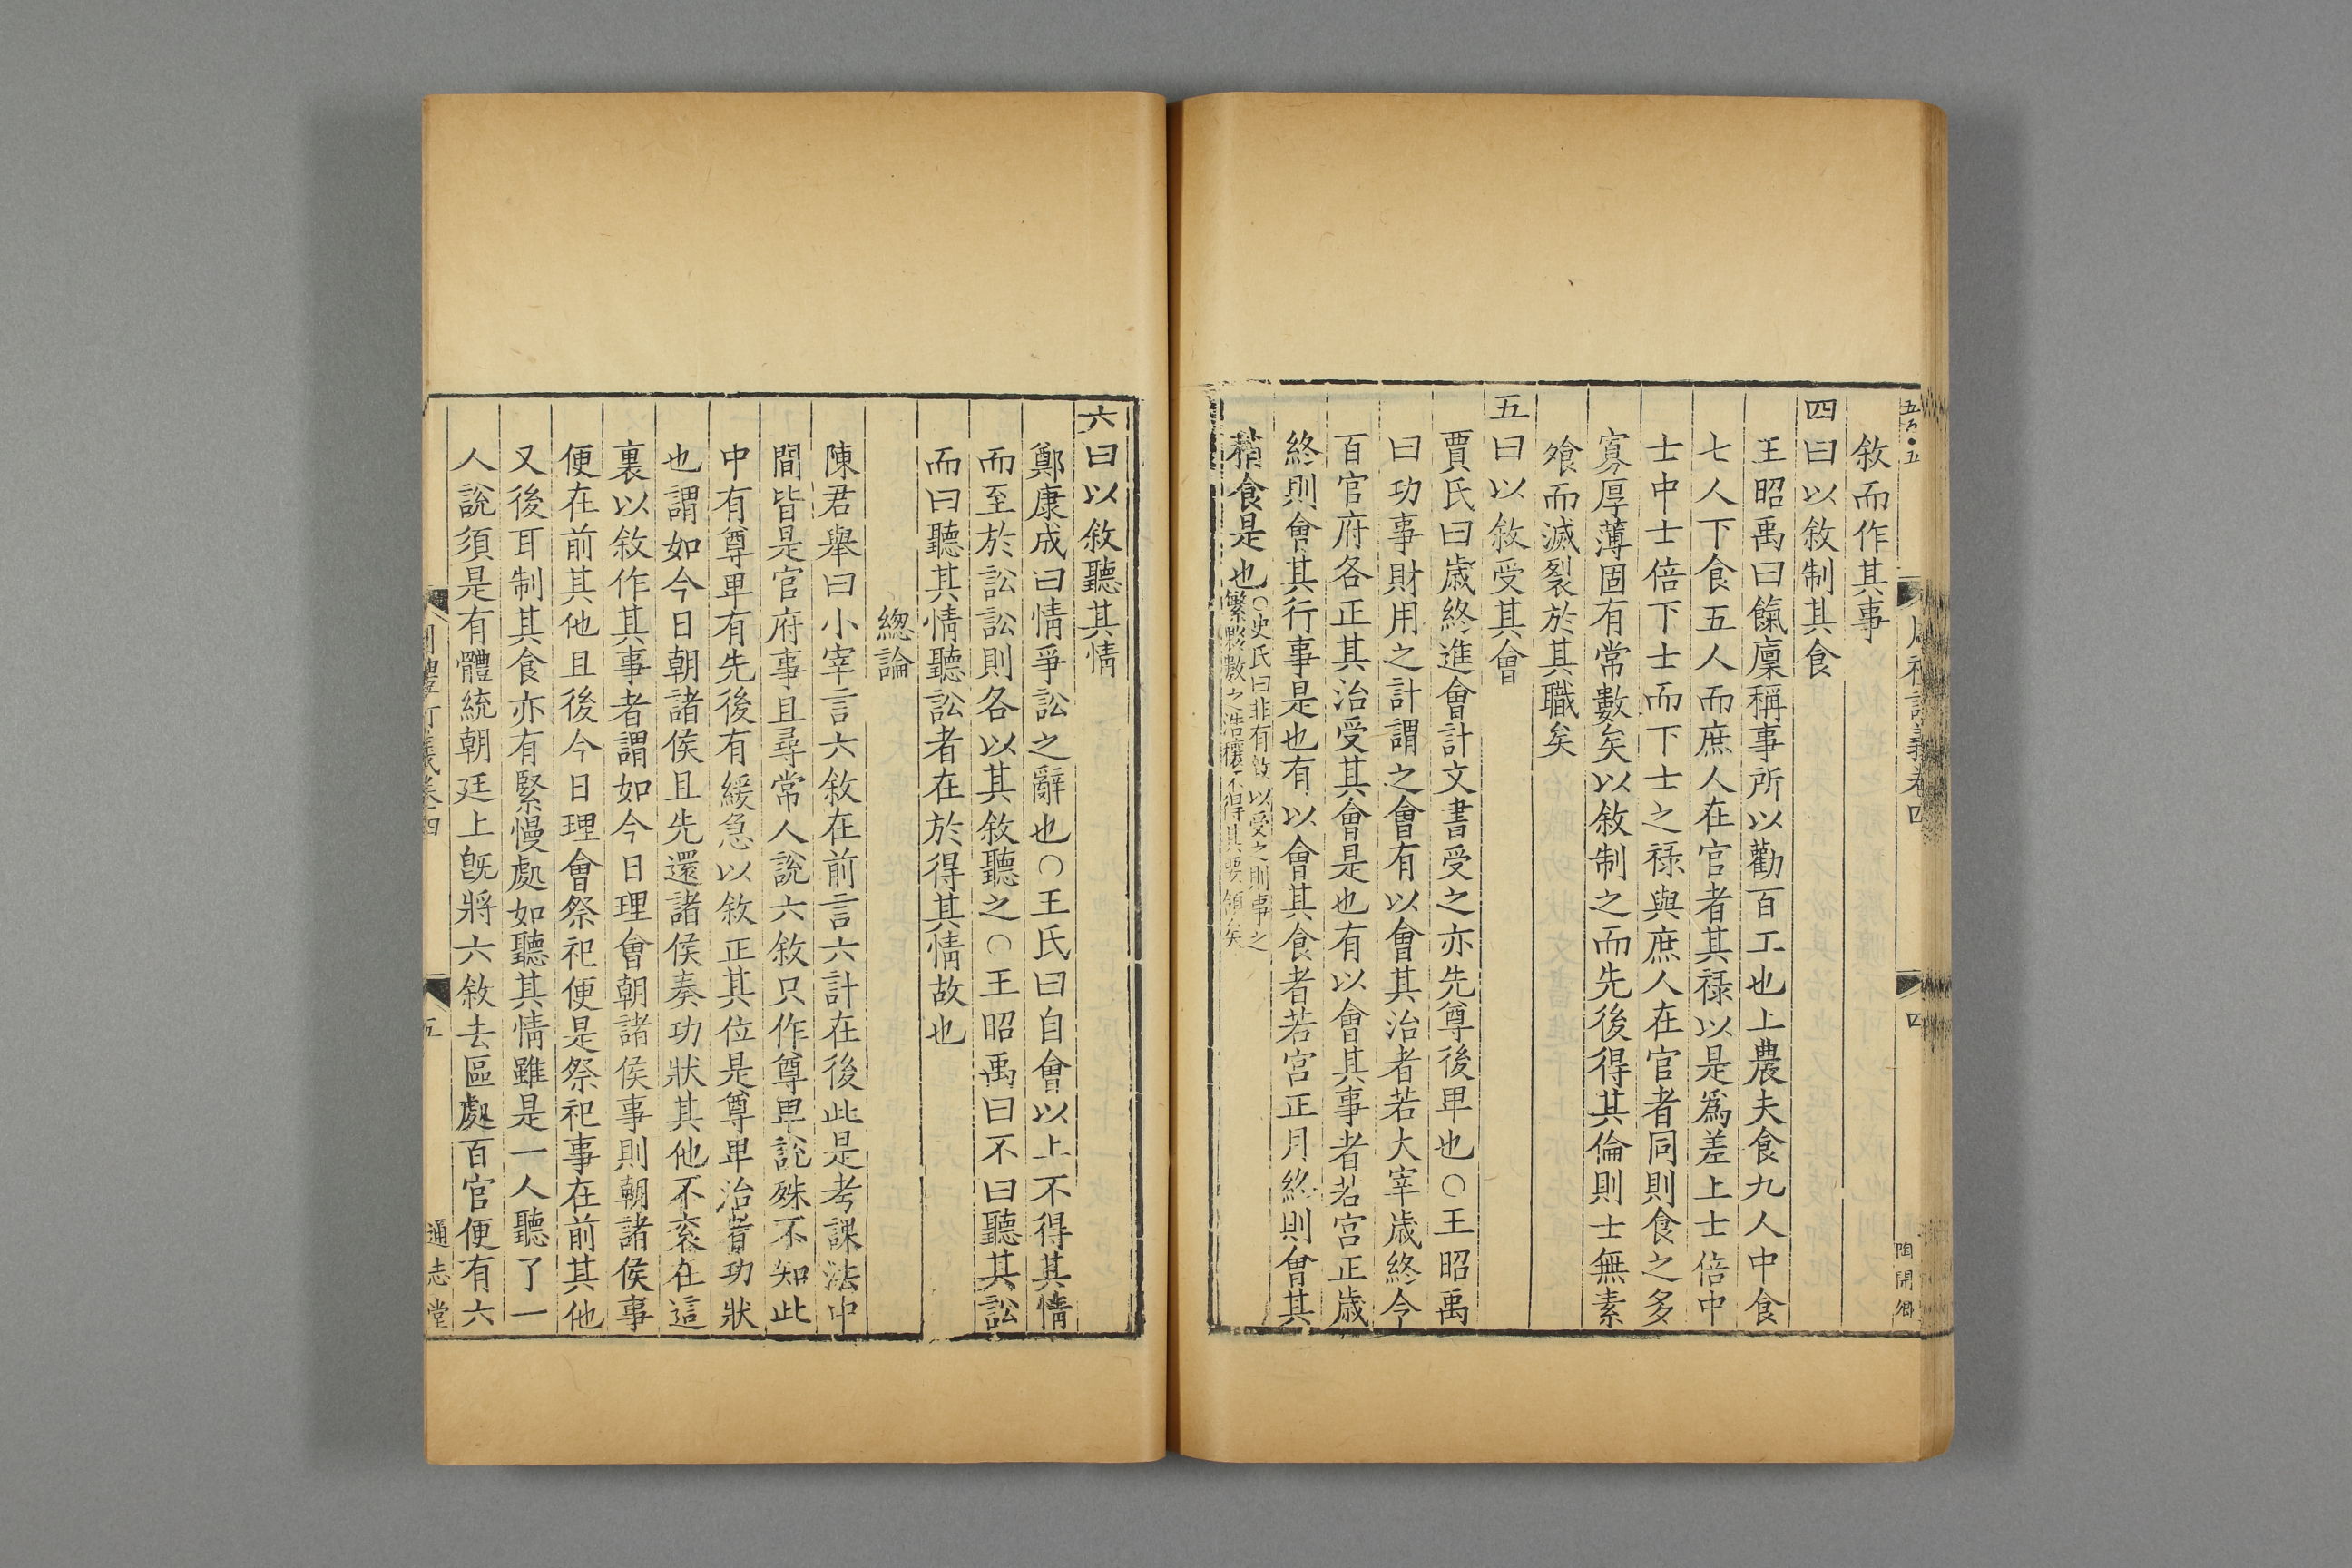 敘而作其事
四曰以敘制其食
王昭禹曰餼廩稱事所以勸百工也上農夫食九人中食
七人下食五人而庶人在官者其祿以是爲差上士倍中
士中士倍下士而下士之祿與庶人在官者同則食之多
寡厚薄固有常數矣以敘制之而先後得其倫則士無素
飧而滅裂於其職矣
五曰以敘受其會
賈氏曰歲終進會計文書受之亦先尊後卑也○王昭禹
曰功事財用之計謂之會有以會其治者若大宰歲終令
百官府各正其治受其會是也有以會其事者若宫正歲
終則會其行事是也有以會其食者若宫正月終則會其
稍食是也○史氏曰非有敘以受之則事之
繁夥數之浩穰不得其要領矣
四
陶開卿
六曰以敘聽其情
鄭康成曰情爭訟之辭也○王氏曰自會以上不得其情
而至於訟訟則各以其敘聽之○王昭禹曰不曰聽其訟
而曰聽其情聽訟者在於得其情故也
總論
陳君舉曰小宰言六敘在前言六計在後此是考課法中
間皆是官府事且尋常人說六敘只作尊卑說殊不知此
中有尊卑有先後有緩急以敘正其位是尊卑治者功狀
也謂如今日朝諸侯且先還諸侯奏功狀其他不袞在這
裏以敘作其事者謂如今日理會朝諸侯事則朝諸侯事
便在前其他且後今日理會祭祀便是祭祀事在前其他
又後耳制其食亦有緊慢處如聽其情雖是一人聽了一
人說須是有體統朝廷上旣將六敘去區處百官便有六
五
通志堂